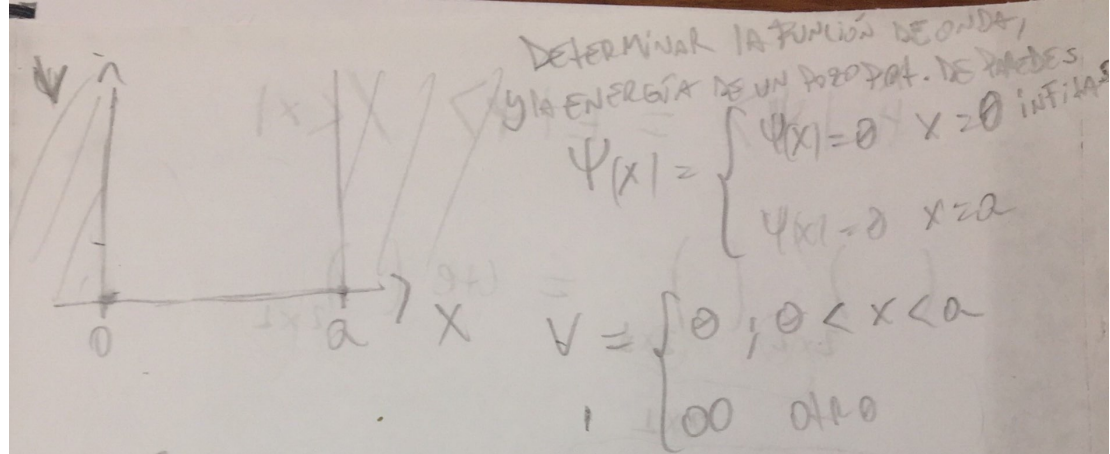 DETERMINAR LA FUNCIÓN DE ONDA,
Y LA ENERGÍA DE UN POZO POT. DE PAREDES
INFITAS
V
Ψ(x) = { Ψ(x) = 0 x = 0
Ψ(x) = 0 x = a
0 a X
V = { 0 ; 0 < x < a
∞ otro